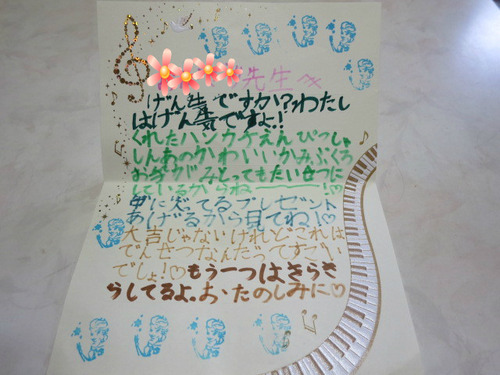 先生へ
げん気ですか?わたし
はげん気ですよ!
くれたハンカチえんぴつしゃ
しんあのかわいいかみぶくろ
お手がみとってもたいせつに
しているからねー!♡
中に入ってるプレゼント
あげるから見てね!♡
大吉じゃないけれどこれは
でんせつなんだってすごい
でしょ!♡もう一つはきらき
らしてるよ。お、たのしみに♡